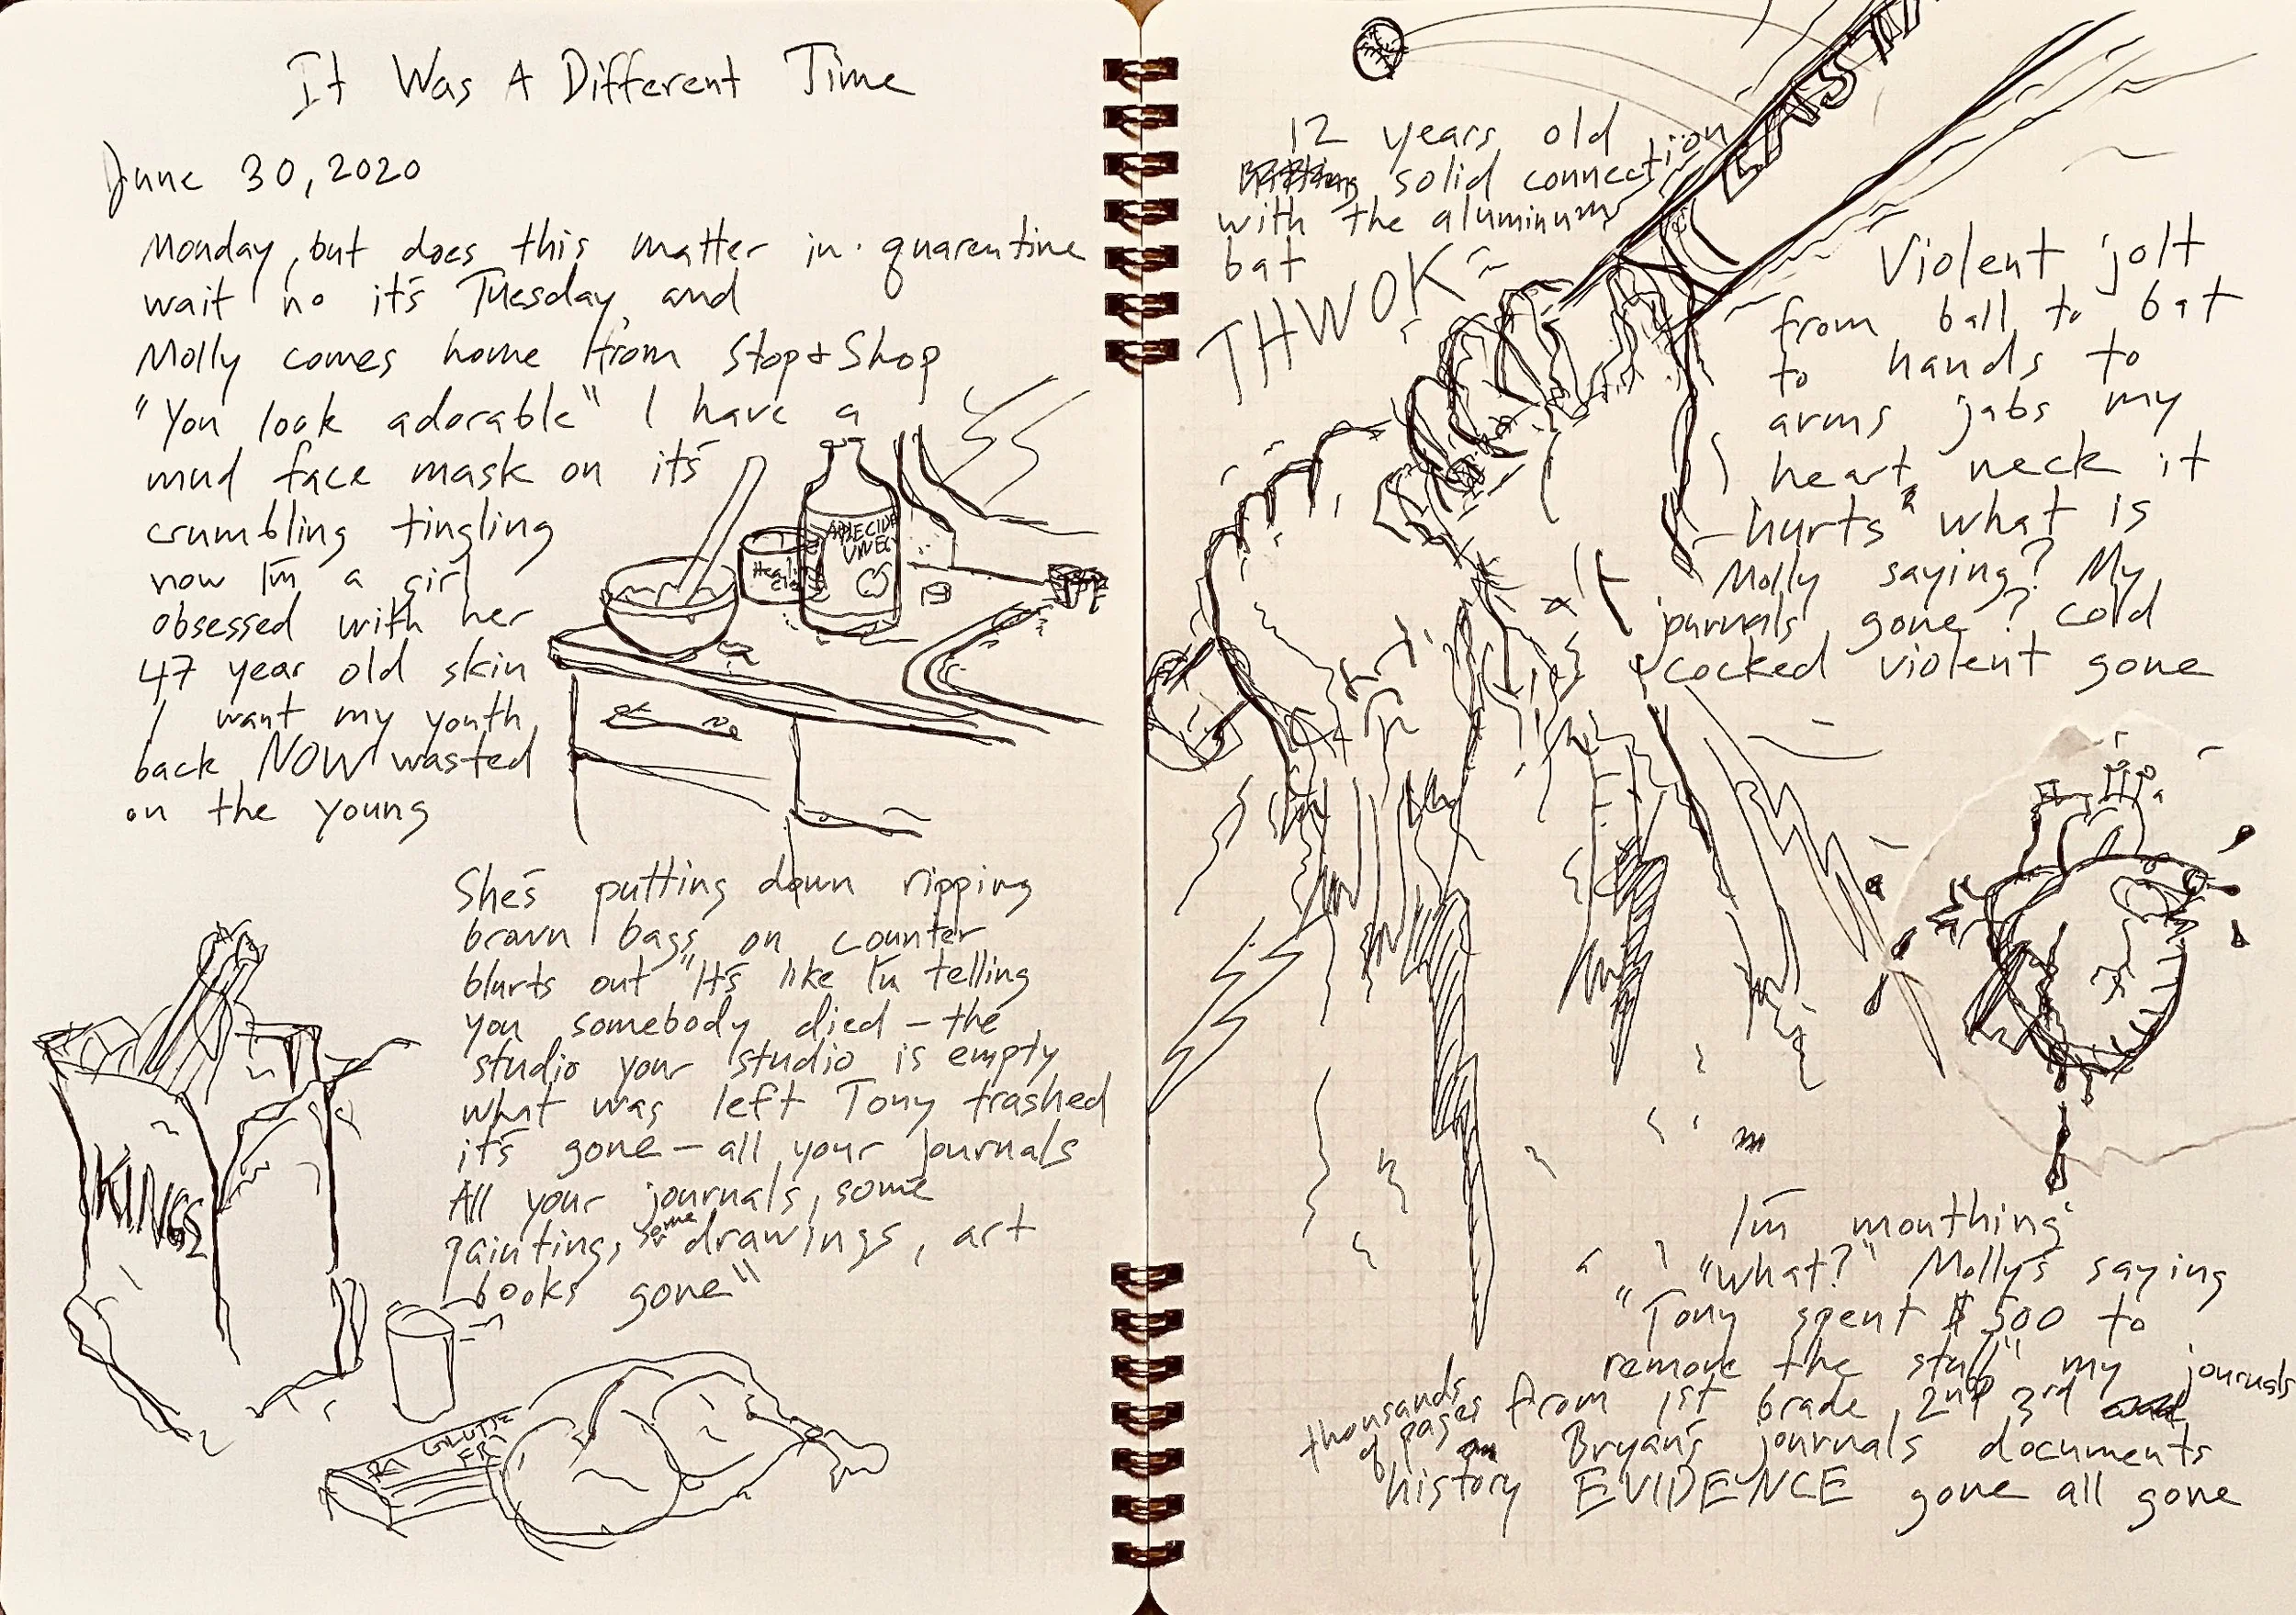 It Was A Different Time
June 30, 2020
Monday, but does this matter in quarentine
wait no it's Tuesday, and
Molly comes home from Stop & Shop
"You look adorable" I have a
mud face mask on it's
crumbling tingling
now I'm a girl
obsessed with her
47 year old skin
I want my youth
back NOW wasted
on the young
APPLE CIDE
VINEG
She's putting down ripping
brown bags on counter
blurts out "It's like I'm telling
you somebody died – the
studio your studio is empty
what was left Tony trashed
it's gone – all your journals
All your journals, some
paintings, some drawings, art
books gone"
KINGS
GLUTE
FR
EAST
12 years old
solid connection
with the aluminum
bat
THWOK
Violent jolt
from ball to bat
to hands to
arms jabs my
heart, neck it
hurts what is
Molly saying? My
journals gone? Cold
cocked violent gone
I'm mouthing
"what?" Molly's saying
"Tony spent $500 to
remove the stuff" my journals
thousands
of pages
from 1st Grade, 2nd 3rd
Bryan's journals documents
history EVIDENCE gone all gone